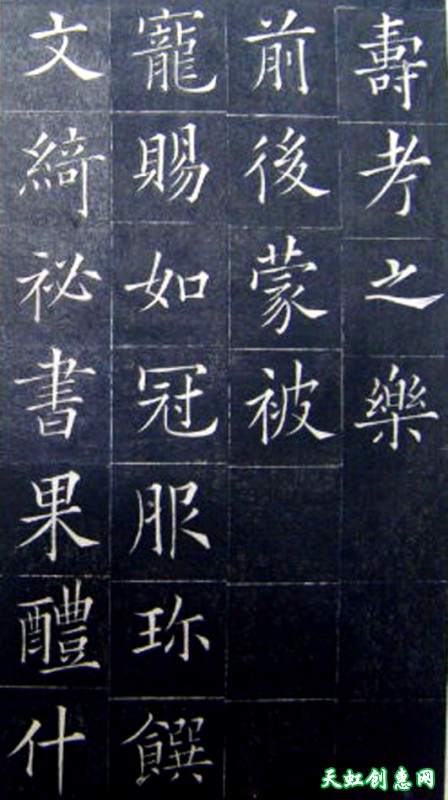 壽考之樂
前後蒙被
寵賜如冠服珎饌
文綺祕書果醴什
天虹创惠网